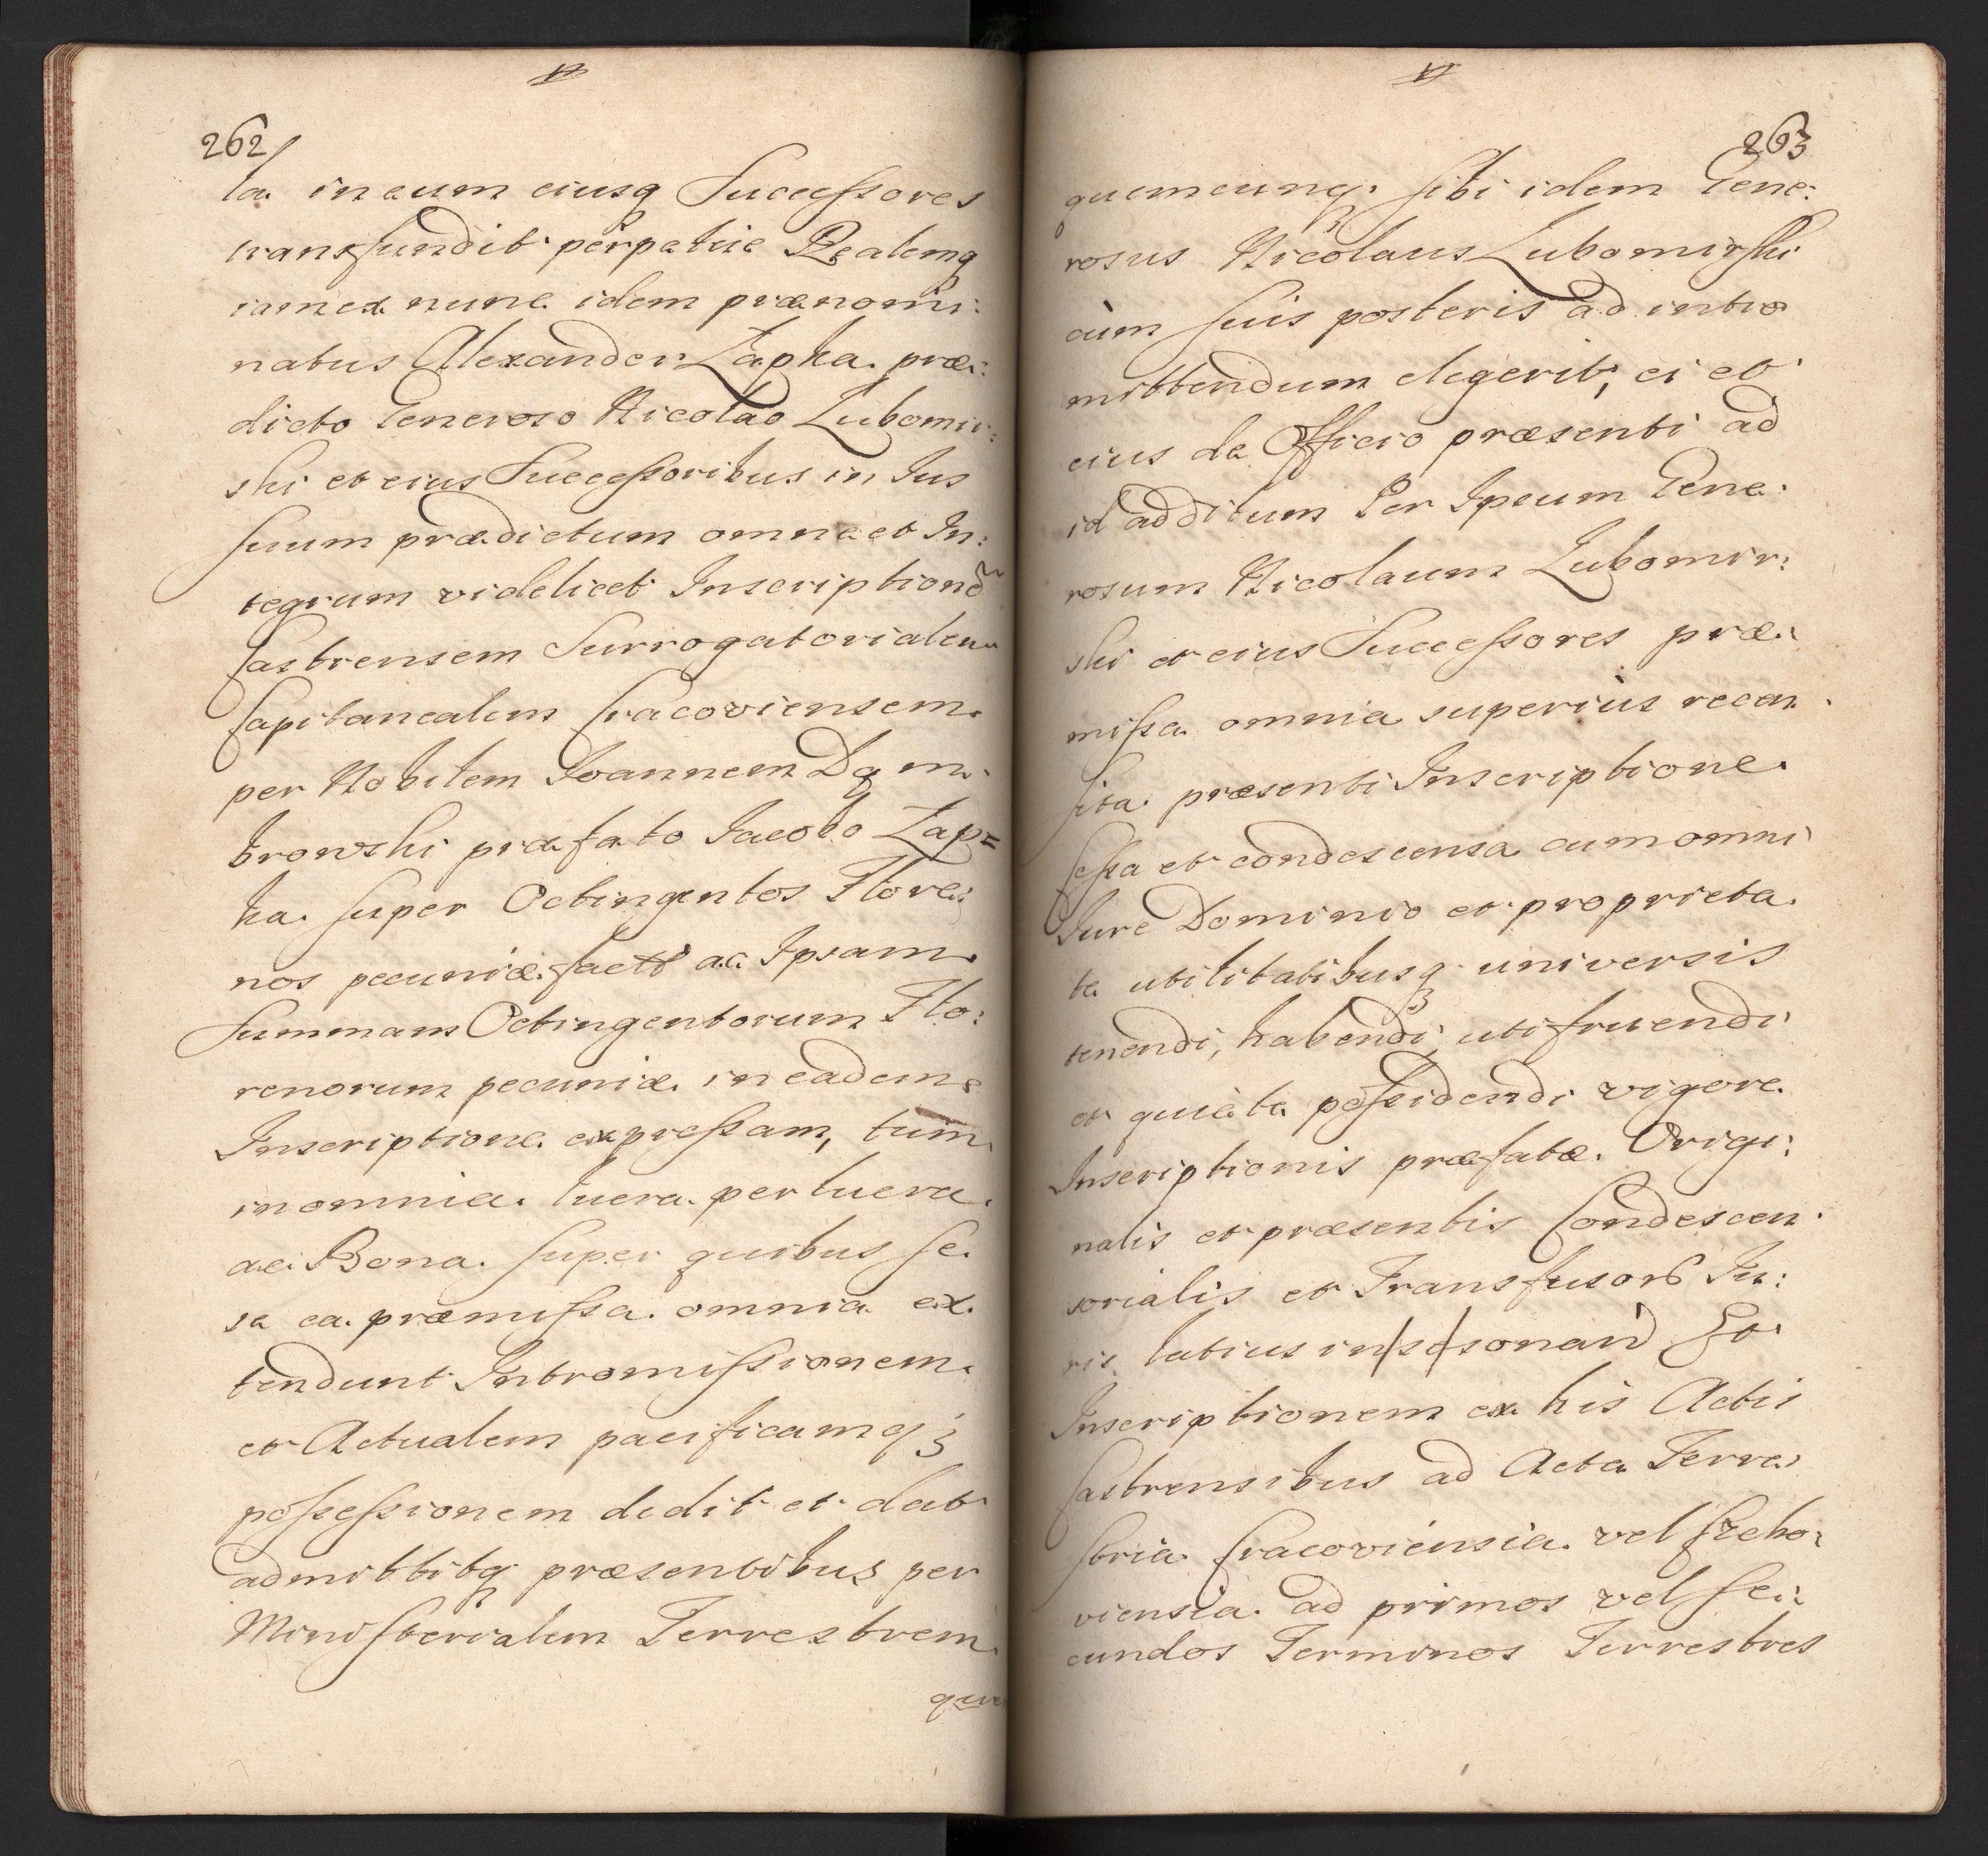 262
ta in eum eiusq Successores
transfundit perpetue Realemq
iam ex nunc idem prænomi:
natus Alexander Zapka præ:
dicto Generoso Nicolao Lubomir:
ski et eius Successoribus in Ius
suum prædictum omne et In:
tegrum videlicet Inscriptionē
Castrensem Surrogatorialem
Capitanealem Cracoviensem
per Nobilem Ioannem Dąm:
browski præfato Iacobo Zap=
ka super Octingentos Flore:
nos pecuniæ fact ac Ipsam
Summam Octingentorum Flo:
renorum pecuniæ in eadem
Inscriptione expressam, tum
in omnia lucra perlucra
ac Bona super quibus se
se ea præmissa omnia ex
tendunt Intromissionem
et Actualem pacificamq3
possessionem dedit et dat
admittitq præsentibus per
Ministerialem Terrestrem
quem
263
quemcunq sibi idem Gene:
rosus Nicolaus Lubomirski
cum suis posteris ad intro
mittendum elegerit, ei et
eius de Officio præsenti ad
id additum Per Ipsum Gene:
rosum Nicolaum Lubomir:
ski et eius Successores præ:
missa omnia superius recen
sita præsenti Inscriptione
cessa et condescensa cum omni
Iure Dominio et proprieta
te utilitatibusq3 universis
tenendi, habendi, utifruendi
et quiete possidendi vigore
Inscriptionis præfatæ Origi:
nalis et præsentis Condescen
sorialis et Transfusor Iu:
ris latius in se sonan Et
Inscriptionem ex his Actis
Castrensibus ad Acta Terre:
stria Cracoviensia vel Czcho:
viensia ad primos vel se:
cundos Terminos Terrestres